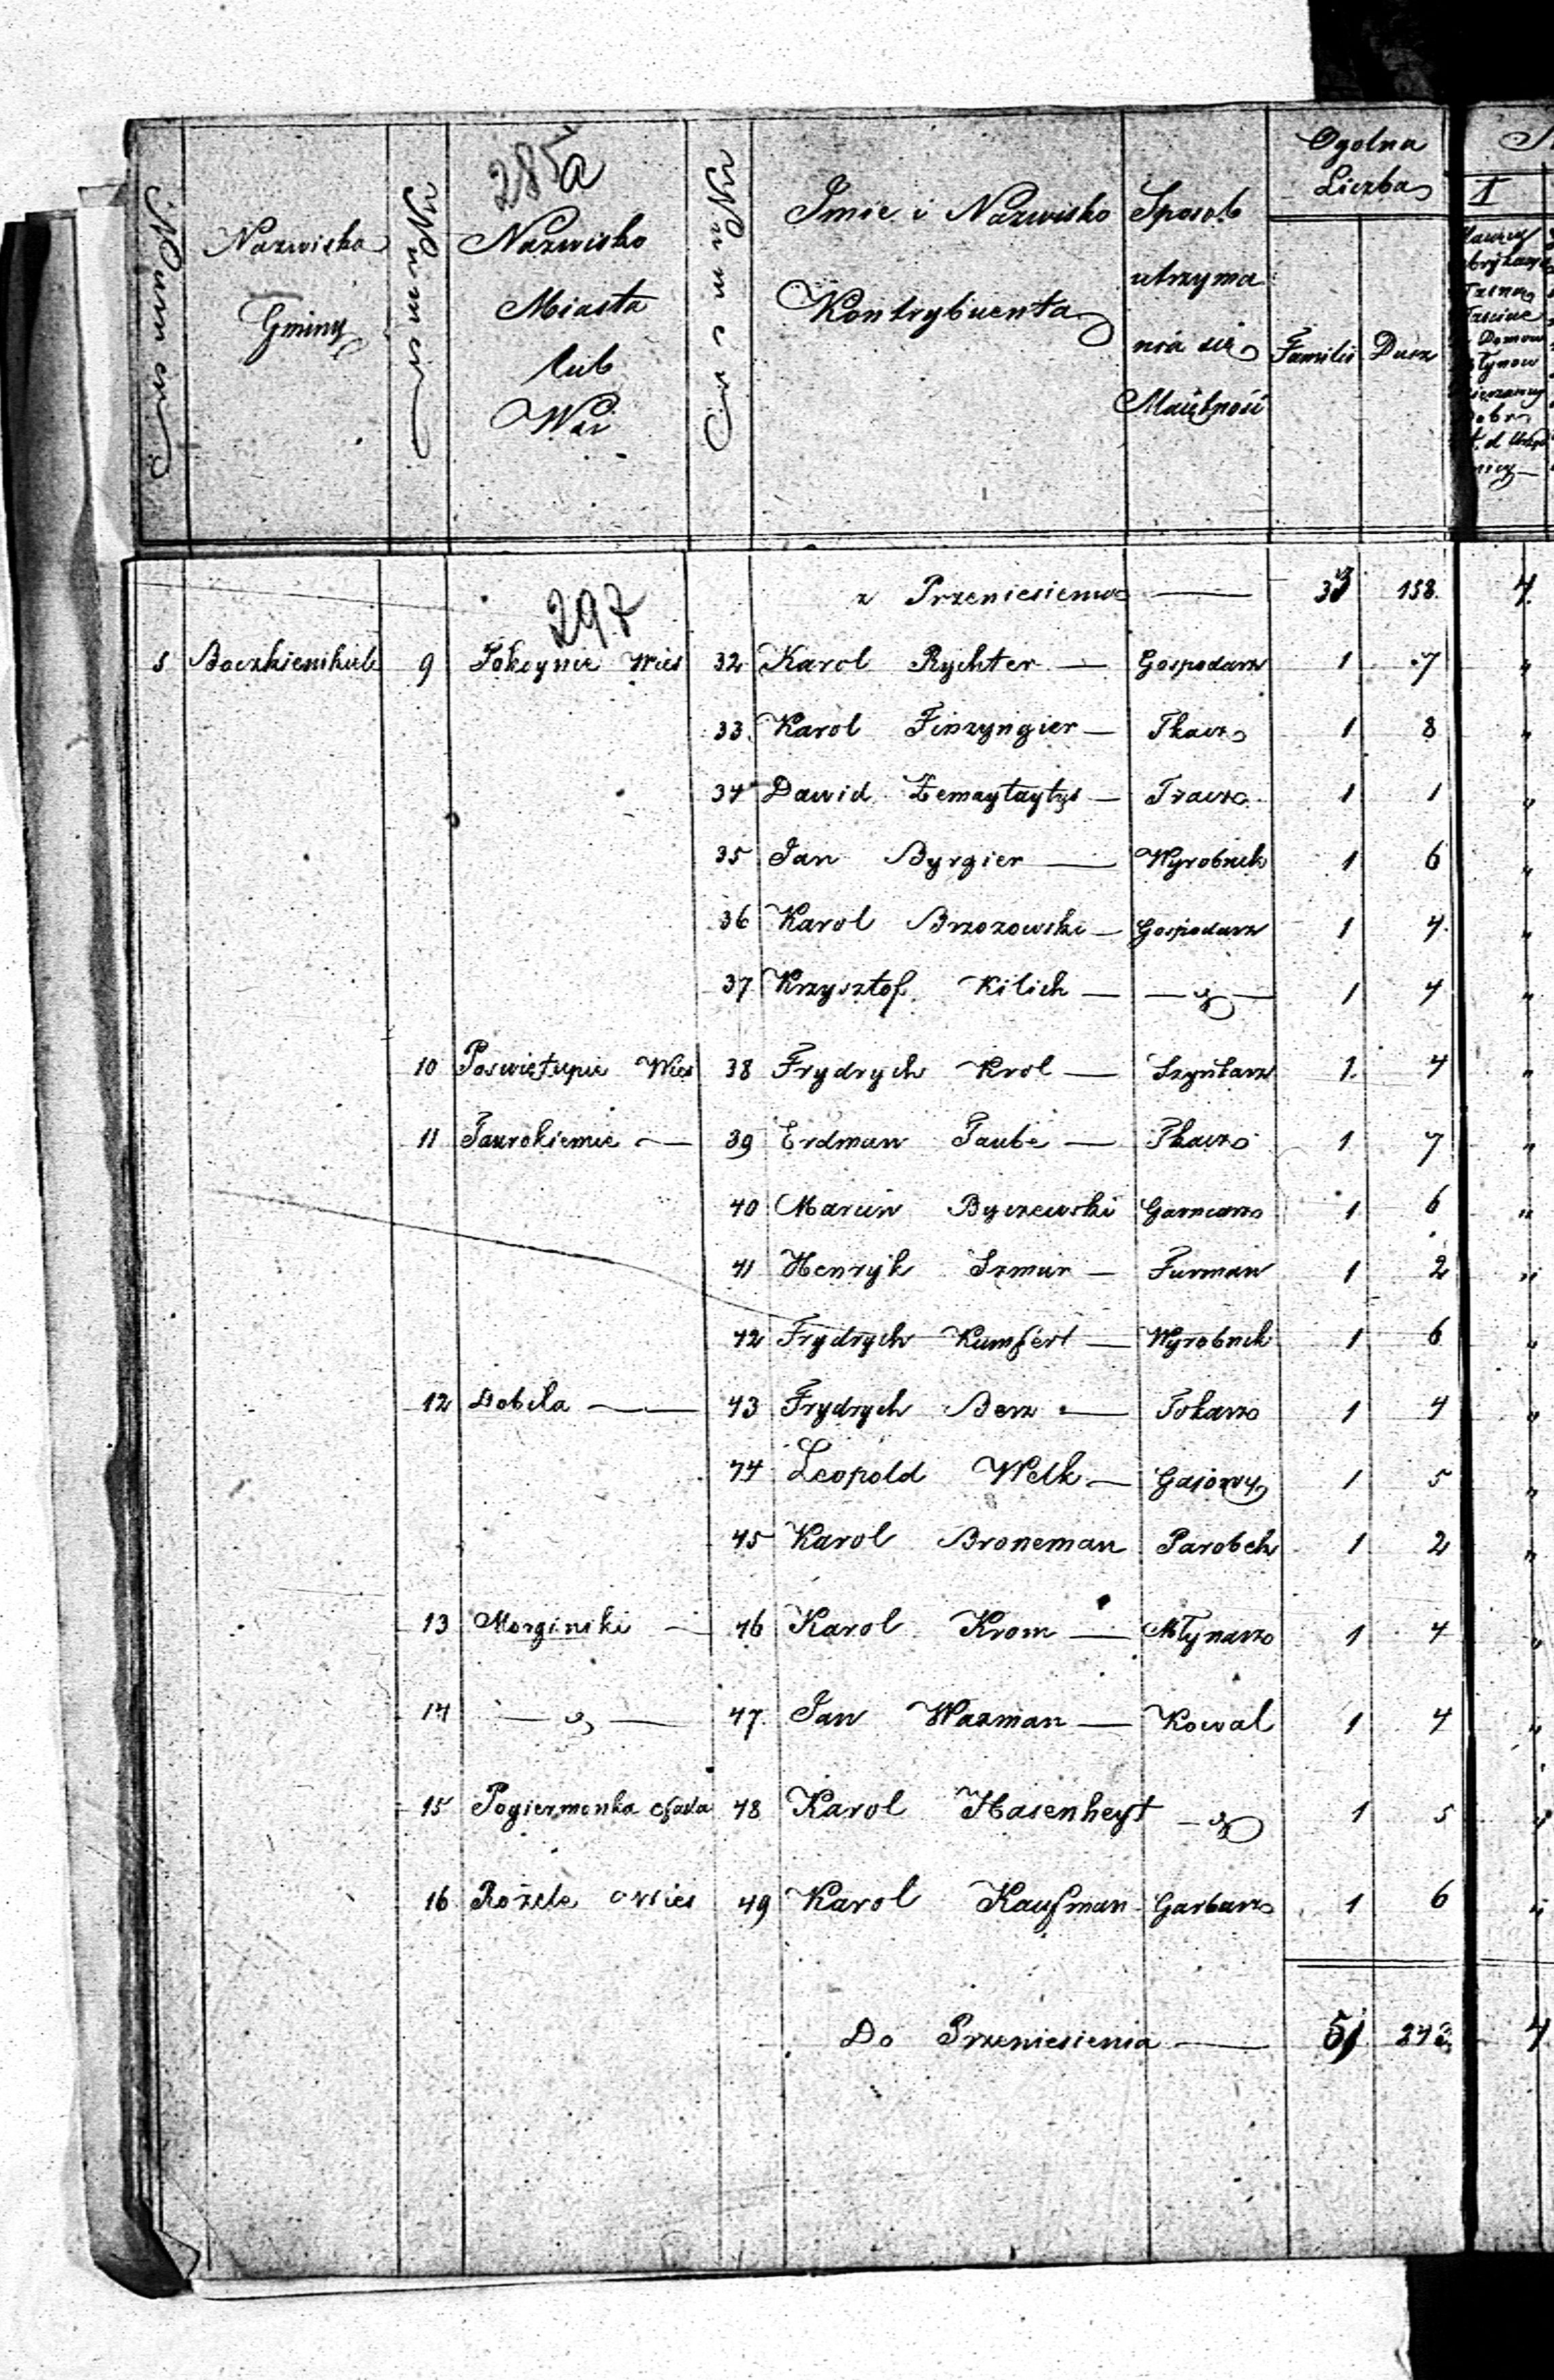 285a
Numer
Nazwisko Gminy
Numer
Nazwisko Miasta lub Wsi
Numer
Imie i Nazwisko Kontrybuenta
Sposob utrzyma nia sie
Ogolna Liczba
Familii Dusz
1
297
z Przeniesienia — 33 158. 4.
5 9 Tokcynie Wies 32 Karol Rychter — Gospodarz 1 7 "
33. Karol Finzyngier — Tkacz 1 8 "
34 Dawid Żemaytaytys — Tracz 1 1 "
35 Jan Byrgier — Wyrobnik 1 6 "
36 Karol Brzozowski — Gospodarz 1 4 "
37 Krzysztof Kilich — — 1 4 "
10 Poswiętupie Wies 38 Frydrych Krol — 1. 4 "
11 Taurokiemie — 39 Erdman Taube — Tkacz 1 7 "
40 Marcin Byczewski Garncarz 1 6 "
41 Henryk Szmur — Furman 1 2 "
42 Frydrych Kumfert — Wyrobnik 1 6 "
12 Dobila — 43 Frydrych Berz — Tokarz 1 4 "
44 Leopold Welk — Gajowy 1 5 "
45 Karol Broneman Parobek 1 2 "
13 Morginski — 46 Karol Krom — Młynarz 1 4 "
14 — 47. Jan Wazman — Kowal 1 4 "
15 Pogiermonka 48 Karol Hasenheyt — 1 5 "
16 Rożele Wies 49 Karol Kaufman Garbarz 1 6 "
Do Przeniesienia — 51 243 4